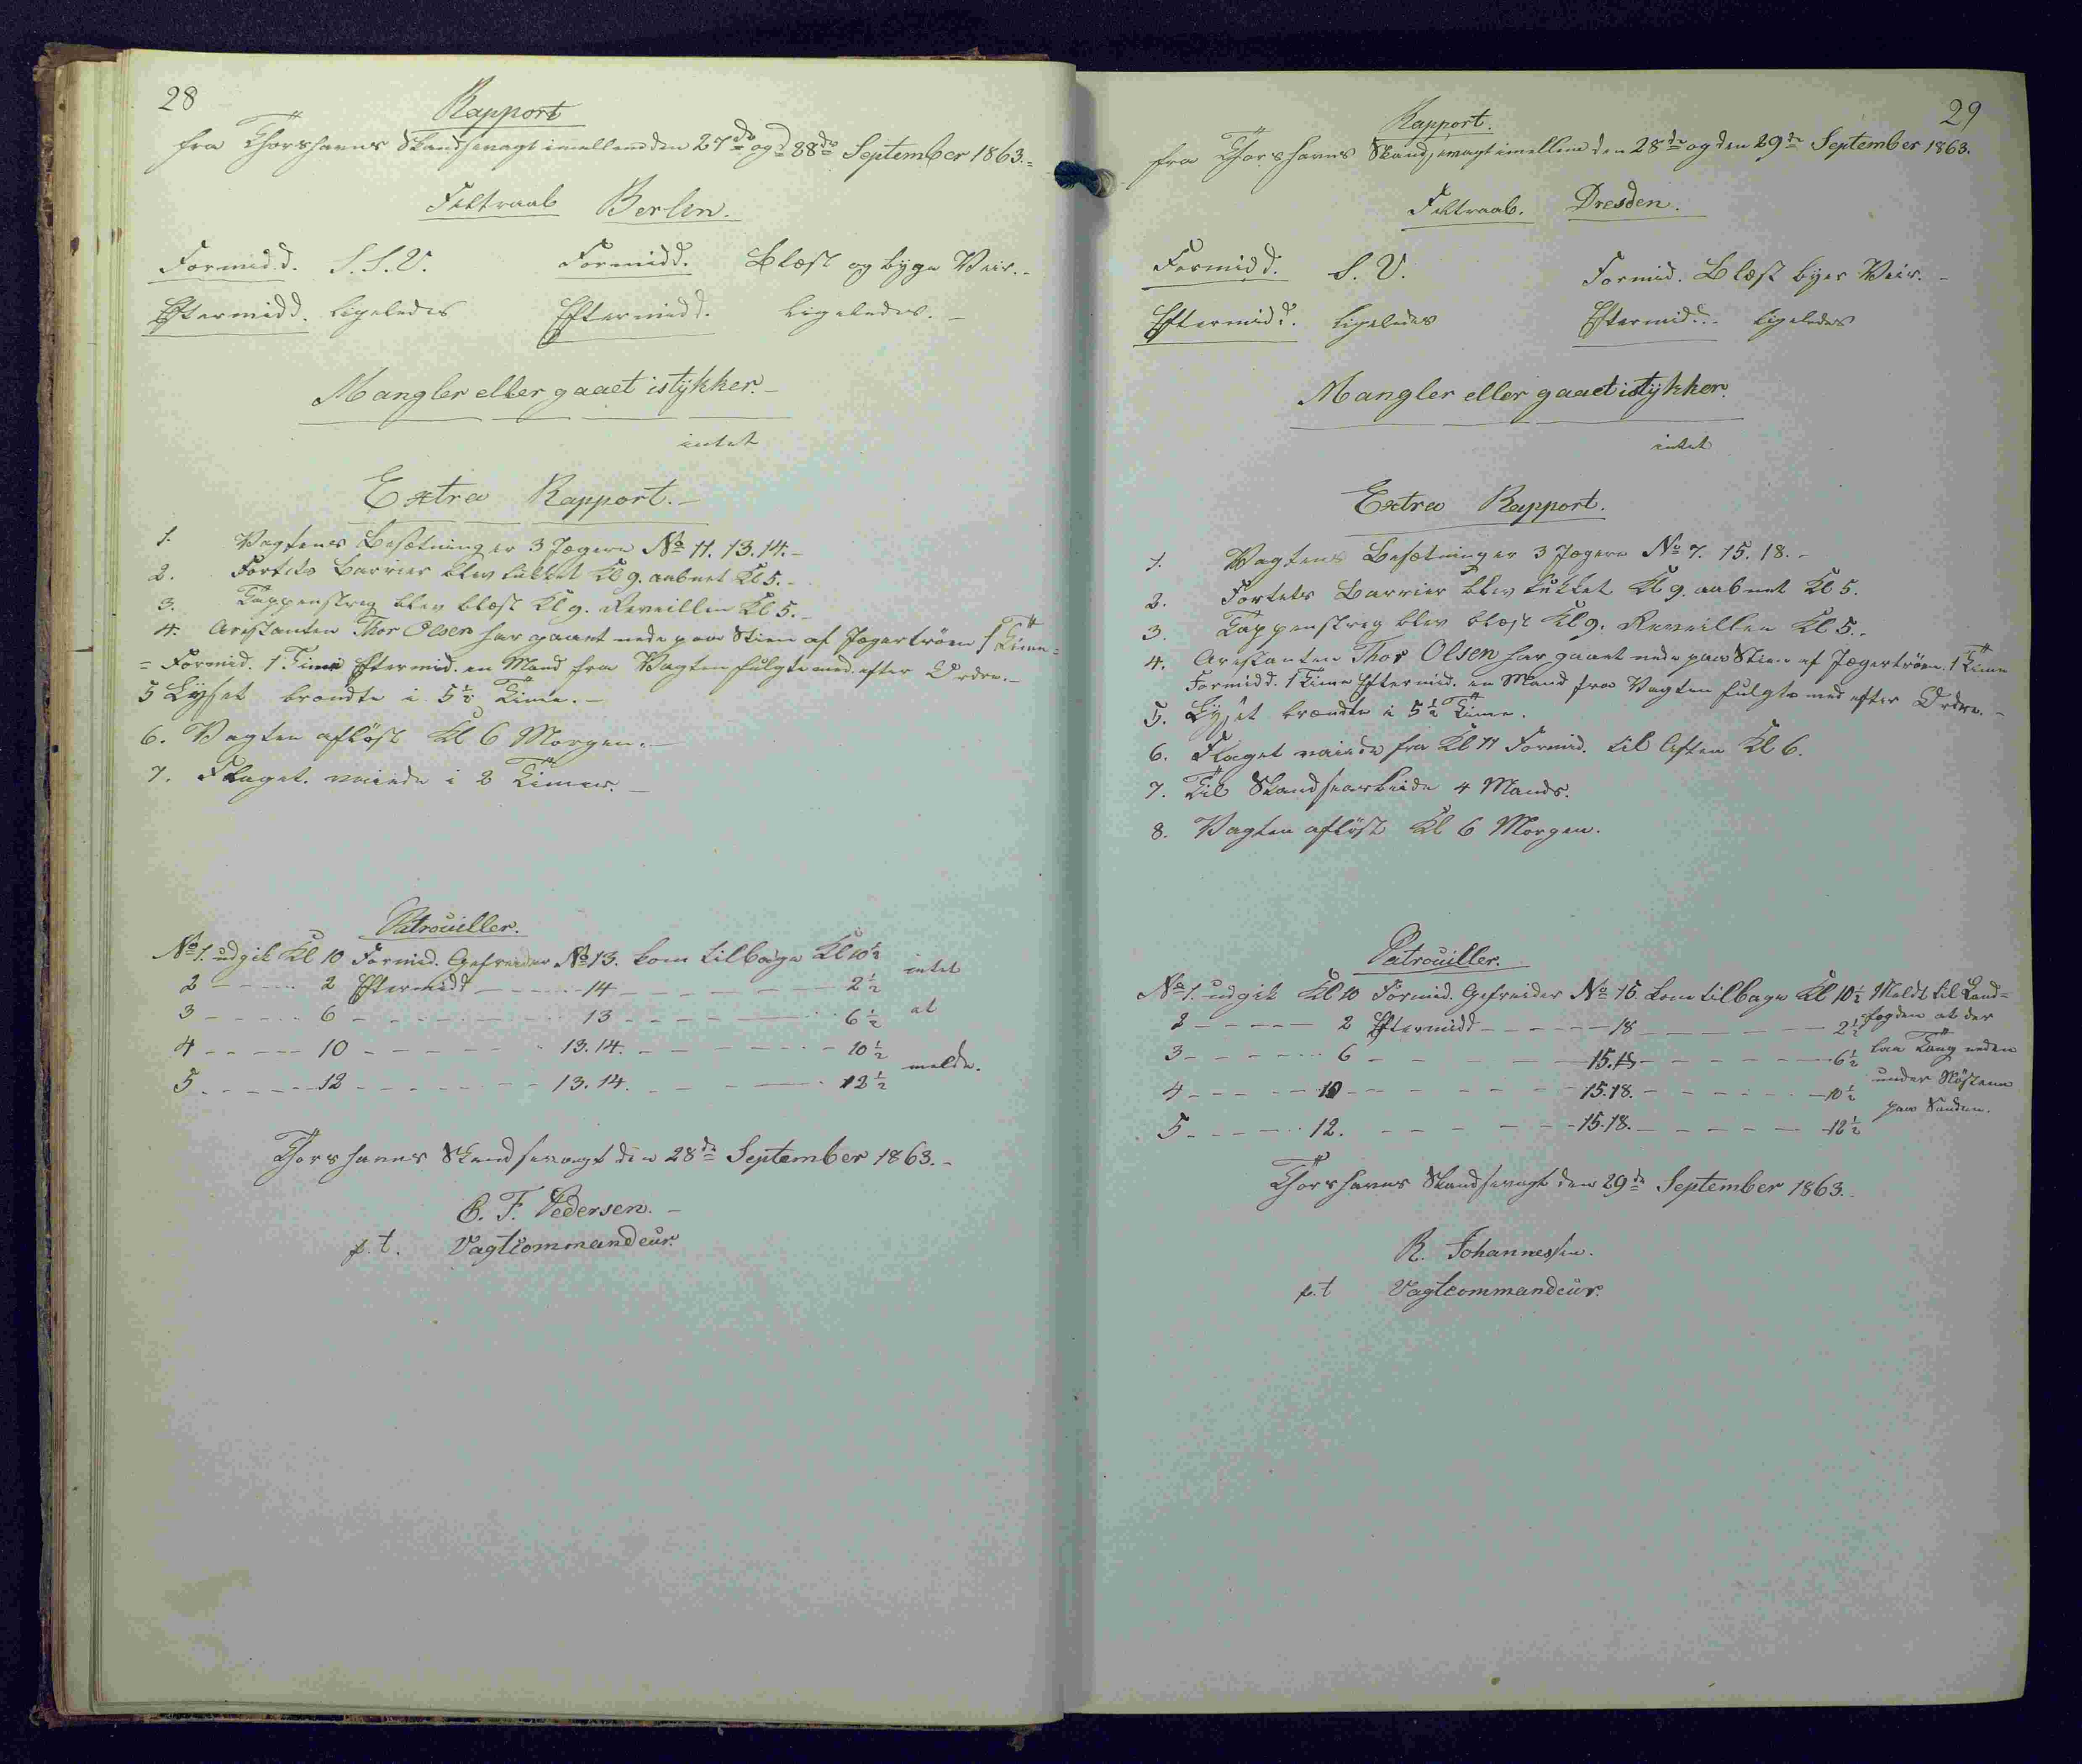 28
Rapport
fra Thorshavns Skandsevagt imellem den 27de og d 28de September 1863.
Feltraab Berlin.
Formidd. S.S.V. Formidd. Blæst og byge Veir.
Eftermidd. ligeledes Eftermidd. ligeledes.
Mangler eller gaaet istÿkker.
intet
Extra Rapport.
1. Vagtens Besætning er 3 Jægere No 11. 13. 14.
2. Fortets Barrier blev lukket Kl 9. aabnet Kl 5.
3. Tappenstreg blev blæst Kl 9. Reveillen Kl 5.
4. Arestanten Thor Olsen har gaaet nede paa Stien af Jægertröen 1 Time
= Formid. 1 Time Eftermid. en Mand fra Vagten fulgte med efter Ordre.
5 Lyset brændte i 5½ Time.
6. Vagten aflöst Kl 6 Morgen.
7. Flaget. vaiede i 2 Timer.
Patrouiller.
No 1. udgik Kl 10 Formid. Gefreider No 13. kom tilbage Kl 10½ intet
2 - - - 2 Eftermidd - - - 14 - - - 2½
3 - - - 6 - - - 13 - - - 6½ at
4 - - - 10 - - - 13. 14. - - - 10½
5 - - - 12 - - - 13. 14. - - - 12½ melde.
Thorshavns Skandsevagt den 28de September 1863.
P. F. Pedersen.
p.t. Vagtcommandeur.
29
Rapport.
fra Thorshavns Skandsevagt imellem den 28de og den 29de September 1863.
Feltraab. Dresden.
Formidd. S. V. Formid. Blæst byer Veir.
Eftermidd. ligeledes Eftermidd. ligeledes
Mangler eller gaaet istÿkker.
intet
Extra Rapport.
1. Vagtens Besætning er 3 Jægere No 7. 15. 18.
2. Fortets Barrier blev lukket Kl 9. aabnet Kl 5.
3. Tappenstreg blev blæst Kl 9. Reveillen Kl 5.
4. Arestanten Thor Olsen har gaaet nede paa Stien af Jægertröen. 1 Time
Formidd. 1 Time Eftermid. en Mand fra Vagten fulgte med efter Ordre.
5. Lyset brændte i 5½ Time.
6. Flaget vaiede fra Kl 11 Formid. til Aften Kl 6.
7. Til Skandsearbeide 4 Mands.
8. Vagten aflöst Kl 6 Morgen.
Patrouiller.
No 1. udgik Kl 10 Formid. Gefreider No 15. kom tilbage Kl 10½ Meldt til Land=
2 - - - 2 Eftermidd - - - 18 - - - 2½ fogden at der
3 - - - 6 - - - 15. - - - 6½ laa Tang neden
4 - - - 10 - - - 15. 18. - - - 10½ under Nöstene
5 - - - 12. - - - 15. 18. - - - 12½ paa Sanden.
Thorshavns Skandsevagt den 29de September 1863.
R. Johannessen.
p.t Vagtcommandeür.